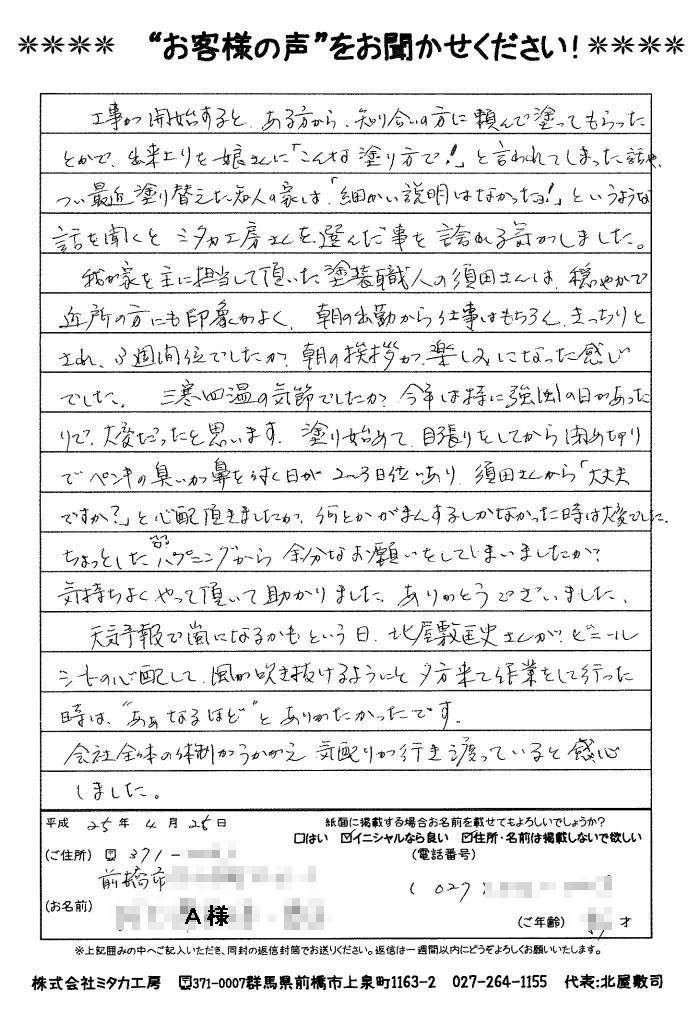 ＊＊＊＊ “お客様の声”をお聞かせください！ ＊＊＊＊
工事が開始すると、ある方から、知り合いの方に頼んで塗ってもらった
とかで、出来上りを娘さんに「こんな塗り方で！」と言われてしまった話や、
つい最近塗り替えた知人の家は「細かい説明はなかったよ！」というような
話を聞くと ミタカ工房さんを選んだ事を誇れる気がしました。
我が家を主に担当して頂いた塗装職人の須田さんは、穏やかで
近所の方にも印象がよく、朝の出勤から仕事はもちろん、きっちりと
され、3週間位でしたが、朝の挨拶が、楽しみになった感じ
でした。 三寒四温の気節でしたが、今年は特に強風の日があった
りで、大変だったと思います。塗り始めて、目張りをしてから閉め切り
でペンキの臭いが鼻をつく日が 2〜3日位いあり、須田さんから「大丈夫
ですか？」と心配頂きましたが、何とかがまんするしかなかった時は大変でした。
ちょっとしたハプニングから 余分なお願いをしてしまいましたが、
気持ちよくやって頂いて助かりました。ありがとうございました。
天気予報で嵐になるかもという日、北屋敷匡史さんが、ビニール
シートの心配して、風が吹き抜けるようにと夕方来て作業をして行った
時は、“あぁなるほど”とありがたかったです。
会社全体の体制がうかがえ 気配りが行き渡っていると感心
しました。
平成 25年 4月 25日
紙面に掲載する場合お名前を載せてもよろしいでしょうか？
□はい ☑イニシャルなら良い ☑住所・名前は掲載しないで欲しい
(ご住所) 〒371-
(電話番号)
前橋市
(027)
(お名前) A様
(ご年齢) 才
※上記囲みの中へご記入いただき、同封の返信封筒でお送りください。返信は一週間以内にどうぞよろしくお願いいたします。
株式会社ミタカ工房 〒371-0007群馬県前橋市上泉町1163-2 027-264-1155 代表:北屋敷司